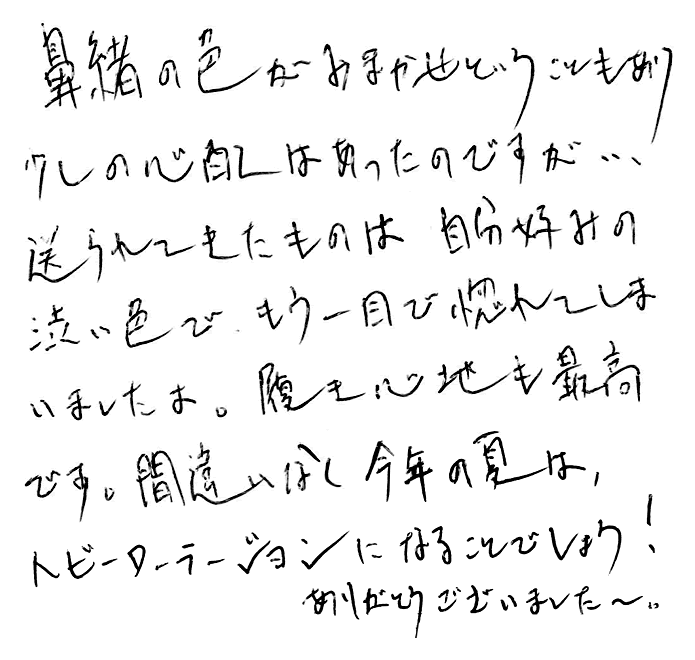 鼻緒の色がおまかせということもあり
少しの心配はあったのですが...
送られてきたものは 自分好みの
渋い色で、もう一目で惚れてしま
いましたよ。履き心地も最高
です。間違いなく今年の夏は、
ヘビーローテーションになることでしょう!
ありがとうございました〜。